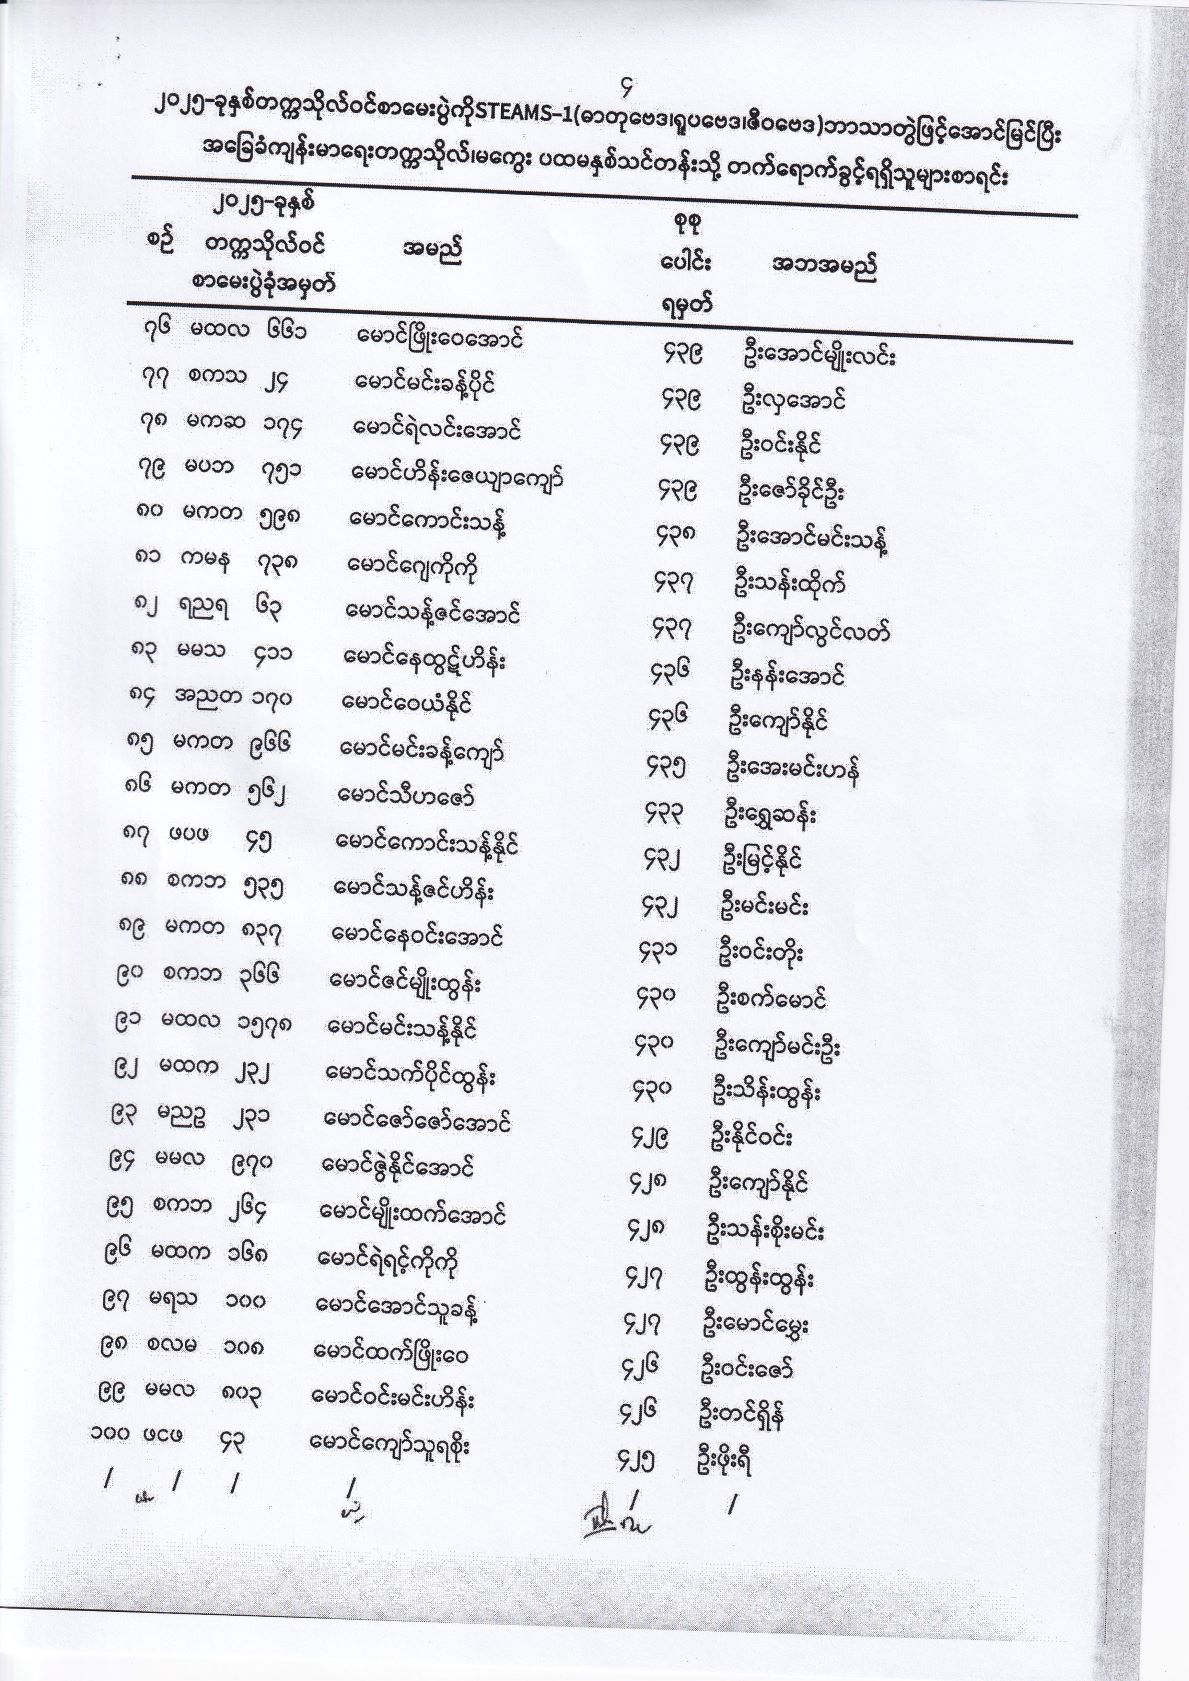 ၄
၂၀၂၅-ခုနှစ်တက္ကသိုလ်ဝင်စာမေးပွဲကိုSTEAMS-1(ဓာတုဗေဒ၊ရူပဗေဒ၊ဇီဝဗေဒ)ဘာသာတွဲဖြင့်အောင်မြင်ပြီး
အခြေခံကျန်းမာရေးတက္ကသိုလ်၊မကွေး ပထမနှစ်သင်တန်းသို့ တက်ရောက်ခွင့်ရရှိသူများစာရင်း
စဉ် ၂၀၂၅-ခုနှစ် တက္ကသိုလ်ဝင် စာမေးပွဲခုံအမှတ် အမည် စုစု ပေါင်း ရမှတ် အဘအမည်
၇၆ မထလ ၆၆၁ မောင်ဖြိုးဝေအောင် ၄၃၉ ဦးအောင်မျိုးလင်း
၇၇ စကသ ၂၄ မောင်မင်းခန့်ပိုင် ၄၃၉ ဦးလှအောင်
၇၈ မကဆ ၁၇၄ မောင်ရဲလင်းအောင် ၄၃၉ ဦးဝင်းနိုင်
၇၉ မပဘ ၇၅၁ မောင်ဟိန်းဇေယျာကျော် ၄၃၉ ဦးဇော်ခိုင်ဦး
၈၀ မကတ ၅၉၈ မောင်ကောင်းသန့် ၄၃၈ ဦးအောင်မင်းသန့်
၈၁ ကမန ၇၃၈ မောင်ဂျေကိုကို ၄၃၇ ဦးသန်းထိုက်
၈၂ ရညရ ၆၃ မောင်သန့်ဇင်အောင် ၄၃၇ ဦးကျော်လွင်လတ်
၈၃ မမသ ၄၁၁ မောင်နေထွဋ်ဟိန်း ၄၃၆ ဦးနန်းအောင်
၈၄ အညတ ၁၇၀ မောင်ဝေယံနိုင် ၄၃၆ ဦးကျော်နိုင်
၈၅ မကတ ၉၆၆ မောင်မင်းခန့်ကျော် ၄၃၅ ဦးအေးမင်းဟန်
၈၆ မကတ ၅၆၂ မောင်သီဟဇော် ၄၃၃ ဦးရွှေဆန်း
၈၇ ဖပဖ ၄၅ မောင်ကောင်းသန့်နိုင် ၄၃၂ ဦးမြင့်နိုင်
၈၈ စကဘ ၅၃၅ မောင်သန့်ဇင်ဟိန်း ၄၃၂ ဦးမင်းမင်း
၈၉ မကတ ၈၃၇ မောင်နေဝင်းအောင် ၄၃၁ ဦးဝင်းတိုး
၉၀ စကဘ ၃၆၆ မောင်ဇင်မျိုးထွန်း ၄၃၀ ဦးစက်မောင်
၉၁ မထလ ၁၅၇၈ မောင်မင်းသန့်နိုင် ၄၃၀ ဦးကျော်မင်းဦး
၉၂ မထက ၂၃၂ မောင်သက်ပိုင်ထွန်း ၄၃၀ ဦးသိန်းထွန်း
၉၃ မညဥ ၂၃၁ မောင်ဇော်ဇော်အောင် ၄၂၉ ဦးနိုင်ဝင်း
၉၄ မမလ ၉၇၀ မောင်ဇွဲနိုင်အောင် ၄၂၈ ဦးကျော်နိုင်
၉၅ စကဘ ၂၆၄ မောင်မျိုးထက်အောင် ၄၂၈ ဦးသန်းစိုးမင်း
၉၆ မထက ၁၆၈ မောင်ရဲရင့်ကိုကို ၄၂၇ ဦးထွန်းထွန်း
၉၇ မရသ ၁၀၀ မောင်အောင်သူခန့် ၄၂၇ ဦးမောင်မွှေး
၉၈ စလမ ၁၀၈ မောင်ထက်ဖြိုးဝေ ၄၂၆ ဦးဝင်းဇော်
၉၉ မမလ ၈၀၃ မောင်ဝင်းမင်းဟိန်း ၄၂၆ ဦးတင်ရှိန်
၁၀၀ ဖငဖ ၄၃ မောင်ကျော်သူရစိုး ၄၂၅ ဦးဖိုးရီ
/ / / / / /